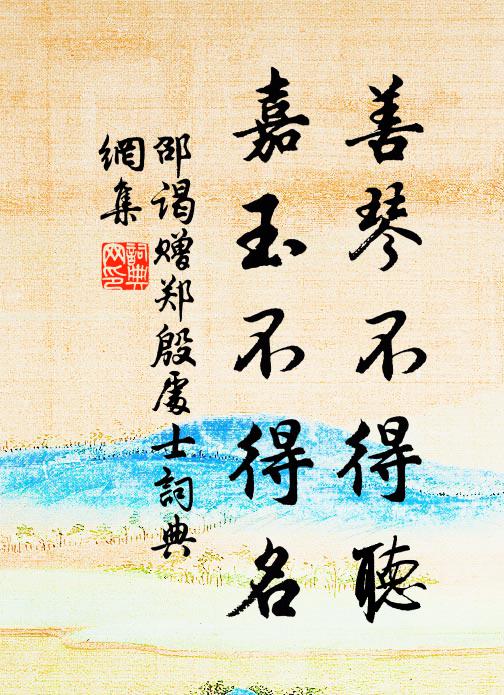 善琴不得聽
嘉玉不得名
邵谒赠郑殷處士詞典
網集
詞典
网印